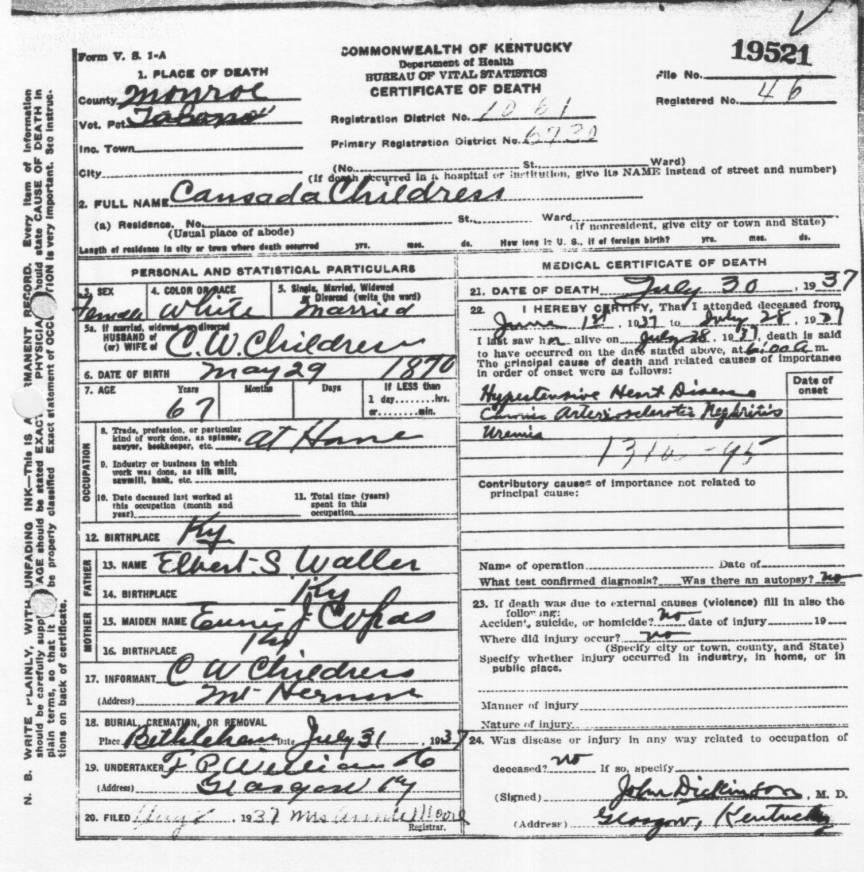 19521
Form V. S. 1-A
COMMONWEALTH OF KENTUCKY
Department of Health
BUREAU OF VITAL STATISTICS
CERTIFICATE OF DEATH
File No.
Registered No. 46
1. PLACE OF DEATH
County Monroe
Vot. Pct.
Inc. Town
City
Registration District No. 1061
Primary Registration District No. 6730
(No. St. Ward)
(If death occurred in a hospital or institution, give its NAME instead of street and number)
2. FULL NAME Cansada Childress
(a) Residence, No. St., Ward
(Usual place of abode) (If nonresident, give city or town and State)
Length of residence in city or town where death occurred yrs. mos. ds. How long in U. S., if of foreign birth? yrs. mos. ds.
PERSONAL AND STATISTICAL PARTICULARS
3. SEX Female
4. COLOR OR RACE White
5. Single, Married, Widowed or Divorced (write the word) Married
5a. If married, widowed or divorced
HUSBAND of
(or) WIFE of C. W. Childress
6. DATE OF BIRTH May 29 1870
7. AGE Years Months Days If LESS than
67 1 day........hrs.
or........min.
OCCUPATION
8. Trade, profession, or particular
kind of work done, as spinner,
sawyer, bookkeeper, etc. At Home
9. Industry or business in which
work was done, as silk mill,
sawmill, bank, etc.
10. Date deceased last worked at
this occupation (month and
year)
11. Total time (years)
spent in this
occupation
12. BIRTHPLACE Ky
FATHER
13. NAME Elbert S. Waller
14. BIRTHPLACE Ky
MOTHER
15. MAIDEN NAME J Copas
16. BIRTHPLACE Ky
17. INFORMANT C W Childress
(Address) Mt Hermon
18. BURIAL, CREMATION, OR REMOVAL
Place Bethlehem Date July 31, 1937
19. UNDERTAKER F. P.
(Address) Glasgow Ky
20. FILED 1937 Mrs Moore
Registrar.
MEDICAL CERTIFICATE OF DEATH
21. DATE OF DEATH July 30, 1937
22. I HEREBY CERTIFY, That I attended deceased from
June 1st, 1937 to July 28, 1937
I last saw her alive on July 28, 1937, death is said
to have occurred on the date stated above, at 6:00 a m.
The principal cause of death and related causes of importance
in order of onset were as follows:
Date of
onset
Hypertensive Heart Disease
Chronic Arteriosclerotic Nephritis
Uremia
Contributory causes of importance not related to
principal cause:
Name of operation Date of
What test confirmed diagnosis? Was there an autopsy? no
23. If death was due to external causes (violence) fill in also the
following:
Accident, suicide, or homicide? no date of injury 19
Where did injury occur? no
(Specify city or town, county, and State)
Specify whether injury occurred in industry, in home, or in
public place.
Manner of injury
Nature of injury
24. Was disease or injury in any way related to occupation of
deceased? no If so, specify
(Signed) John Dickinson, M. D.
(Address) Glasgow, Kentucky
N. B. WRITE PLAINLY, WITH UNFADING INK—This is A PERMANENT RECORD. Every item of information
should be carefully supplied. AGE should be stated EXACTLY. PHYSICIANS should state CAUSE OF DEATH in
plain terms, so that it may be properly classified. Exact statement of OCCUPATION is very important. See instruc-
tions on back of certificate.